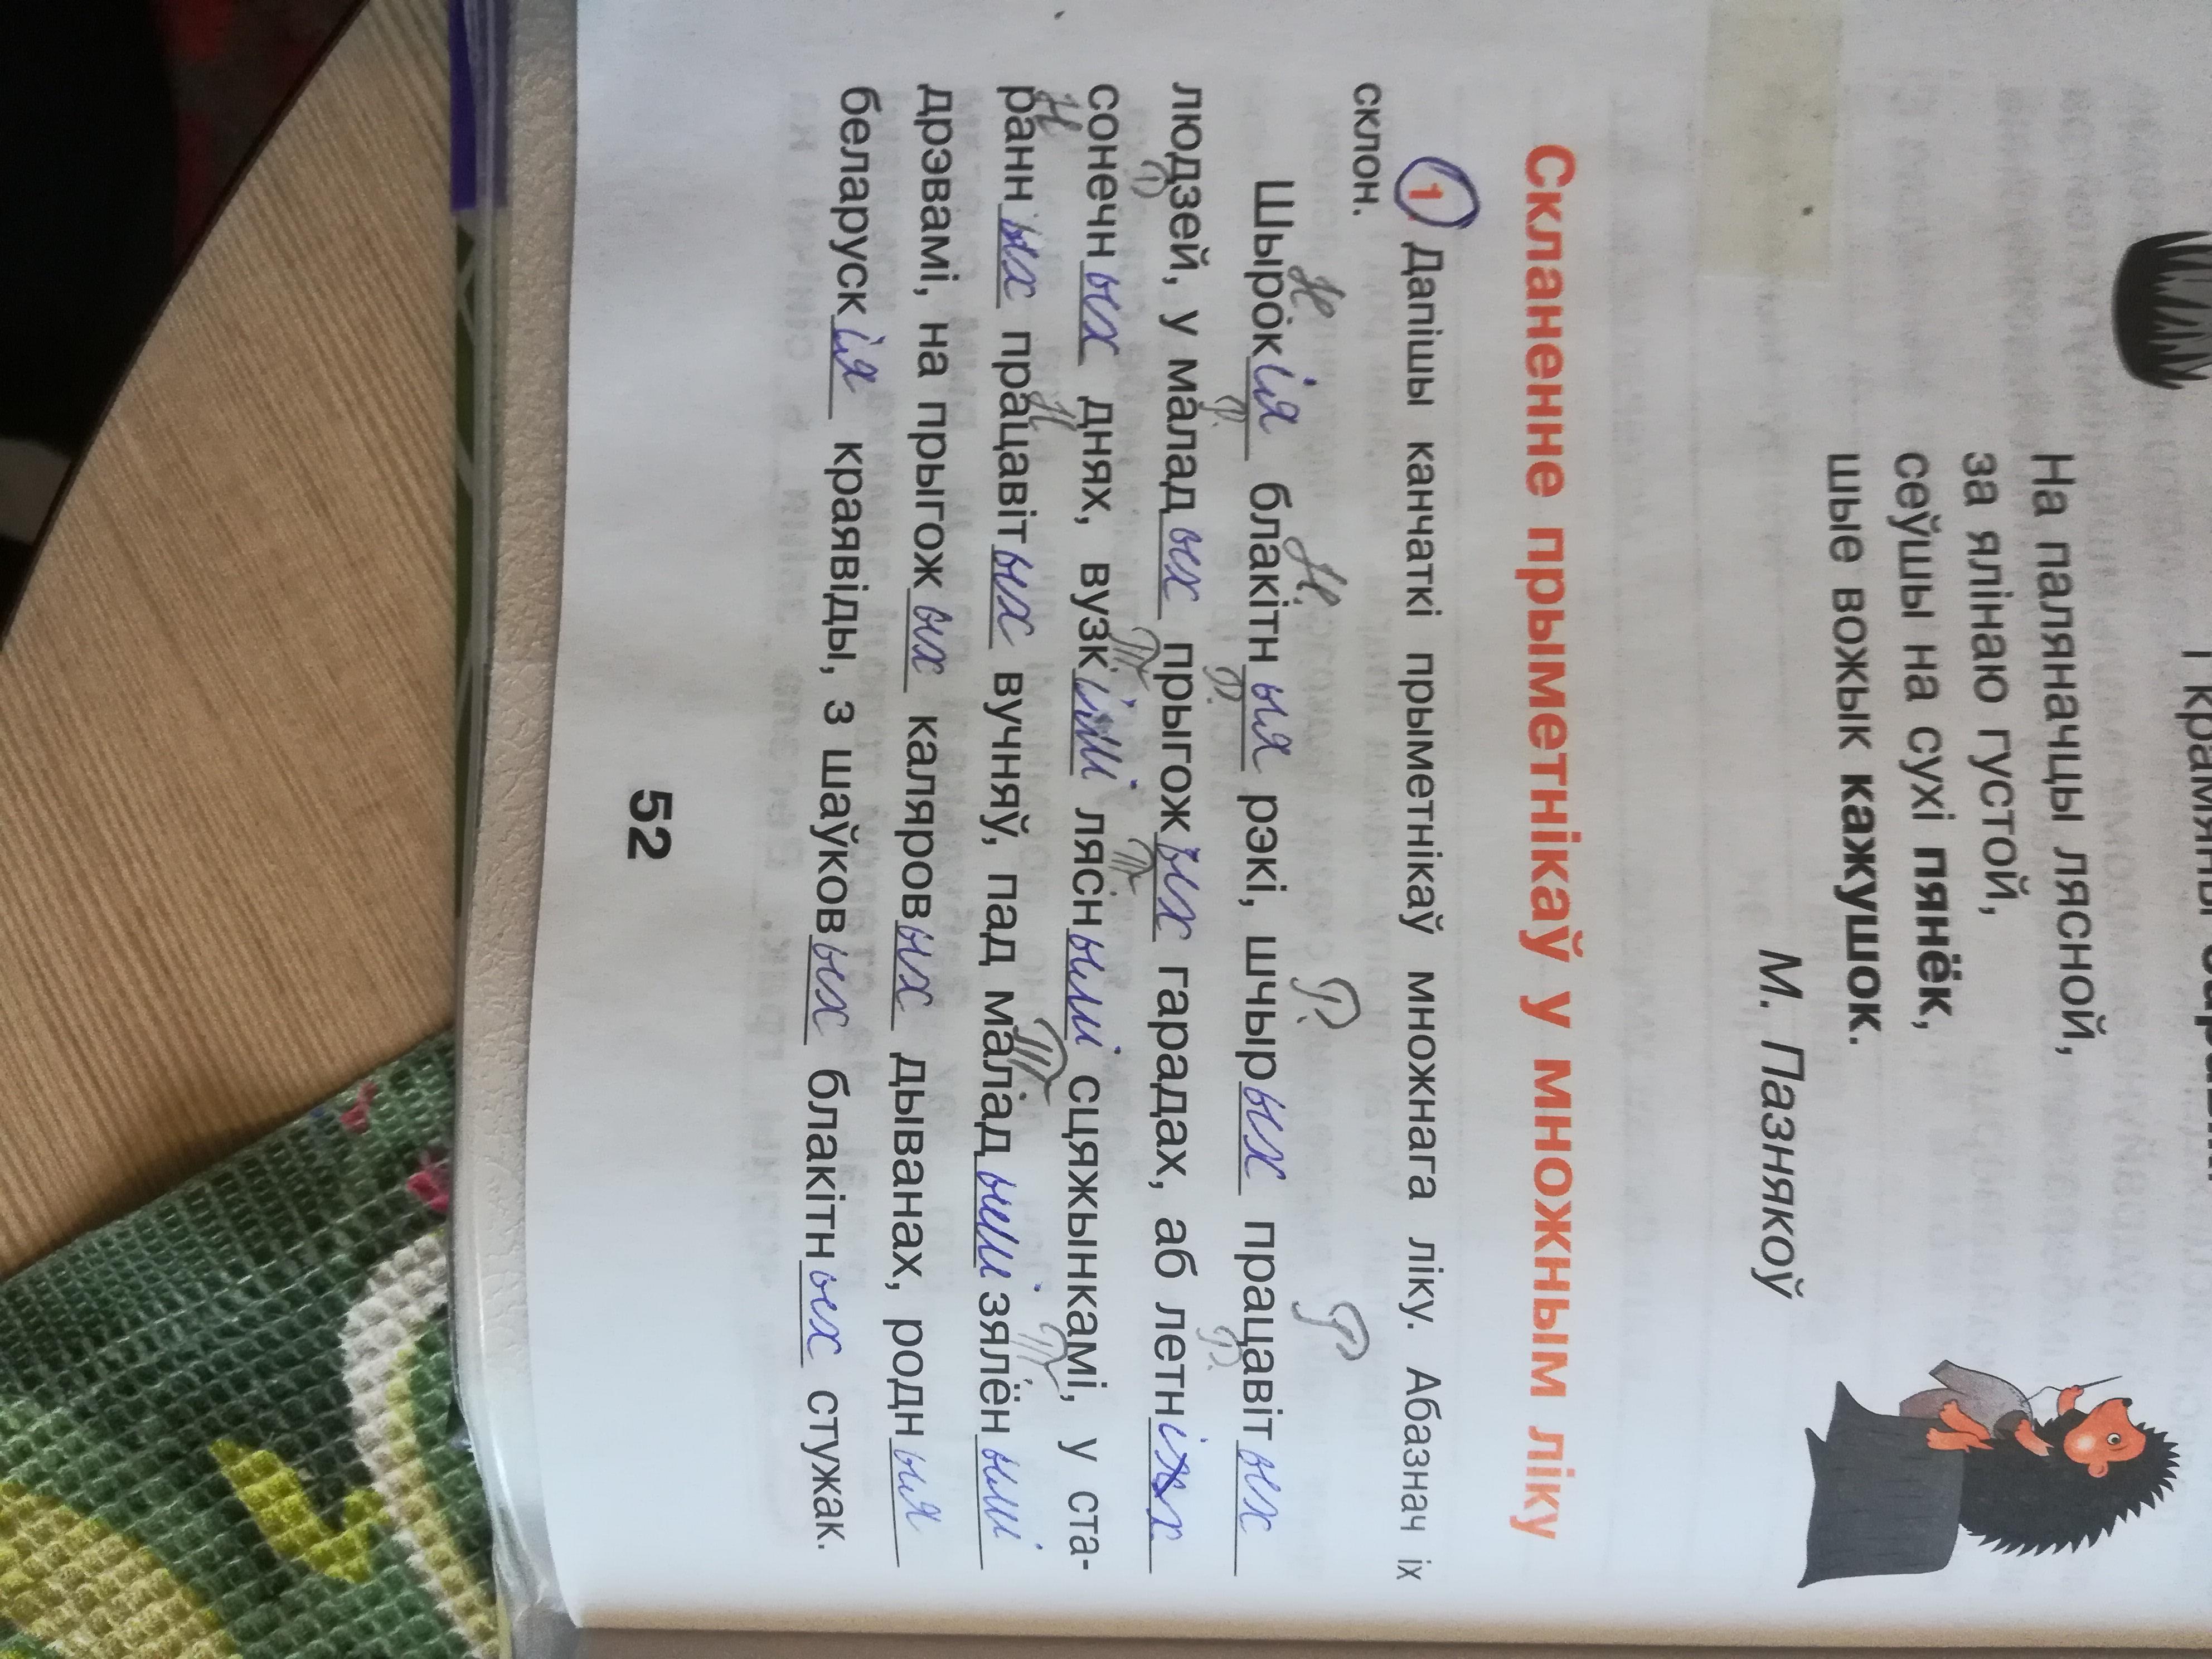 На паляначцы лясной,
за ялінаю густой,
сеўшы на сухі пянёк,
шые вожык кажушок.
М. Пазнякоў
Скланенне прыметнікаў у множным ліку
1. Дапішы канчаткі прыметнікаў множнага ліку. Абазнач іх
склон.
Н Н. Р. Р
Шырокія блакітныя рэкі, шчырых працавітых
людзей, у маладых прыгожых гарадах, аб летніх
сонечных днях, вузкімі ляснымі сцяжынкамі, у ста-
ранных працавітых вучняў, пад маладымі зялёнымі
дрэвамі, на прыгожых каляровых дыванах, родныя
беларускія краявіды, з шаўковых блакітных стужак.
52